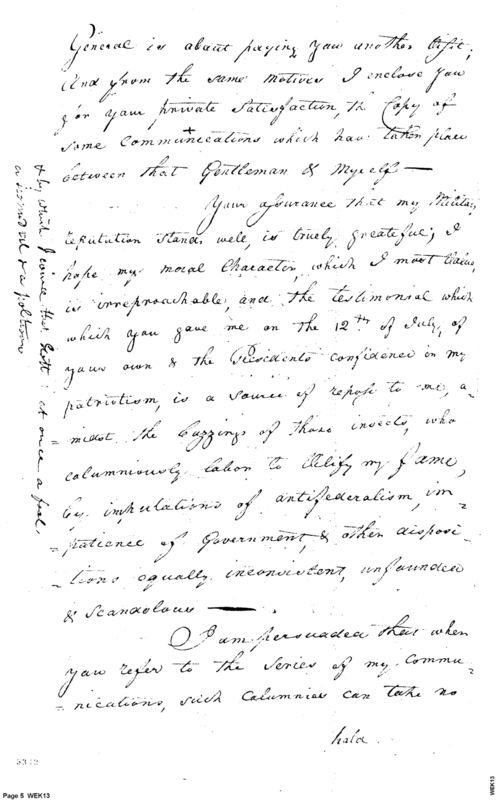 General is about paying you another Visit,
And from the same motives I enclose you
for your private Satisfaction, the Copy of
some + communications which have taken place
between that Gentleman & Myself —
Your assurance that my Military
reputation stands well, is truely grateful; I
hope my moral Character, which I most Value,
is irreproachable, and the testimonial which
which you gave me on the 12th of July, of
your own & the Presidents confidence in my
patriotism, is a source of repose to me, a
=midst the buzzings of those insects, who
calumniously labor to Vilify my fame,
by imputations of antifederalism, im
=patience of Government, & other disposi
=tions equally inconsistent, unfounded
& Scandalous —
I am persuaded that when
you refer to the series of my Commu
=nications, such Calumnies can take no
hold.
+ by which I convict this Scott at once a fool,
a scoundrel & a poltroon
5312
Page 5 WEK13
WEK13